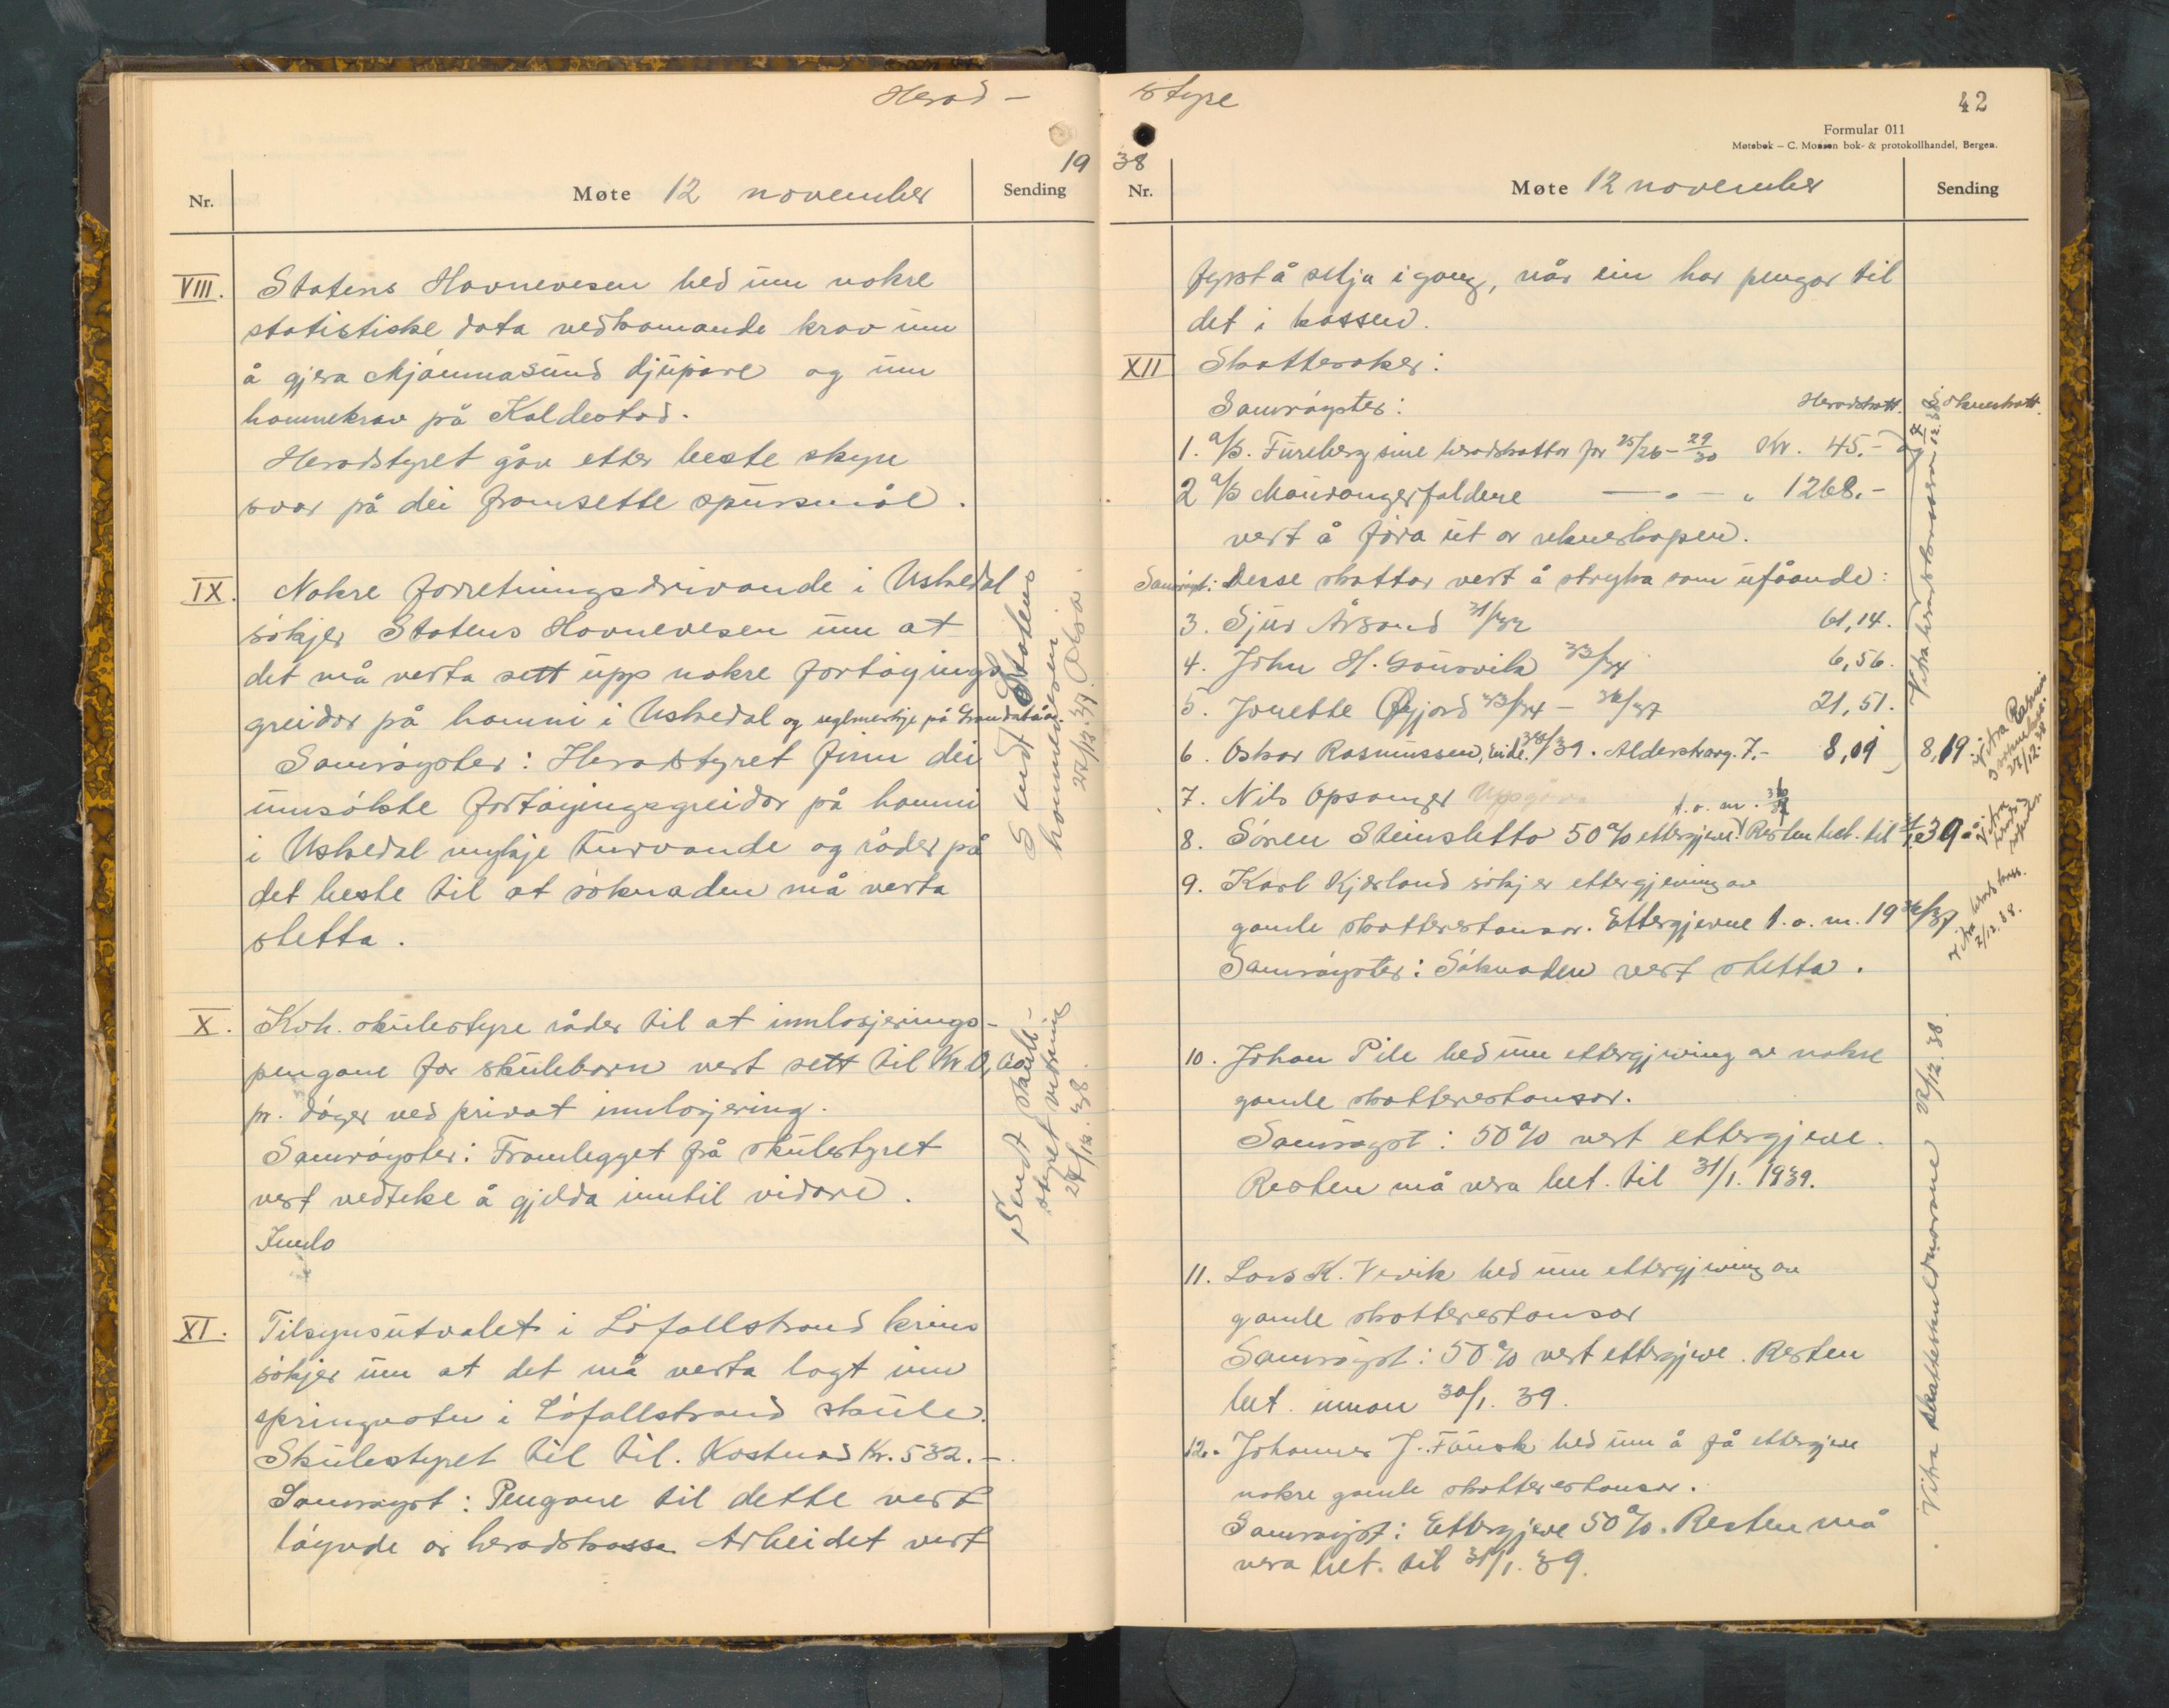 Herad-
19
Nr.
Møte 12 november
Sending
VIII. Statens Havnevesen bed um nokre
statistiske data vedkomande krav um
å gjera Mjånnasund djupare og um
hamnekrav på Kaldestad.
Heradstyret gåv etter beste skyn
svar på dei framsette spursmål.
IX. Nokre forretningsdrivande i Uskedal
søkjer Statens Havnevesen um at
det må verta sett upp nokre fortøyings-
greidor på hamni i Uskedal og seglmerkje på
Samrøystes: Heradstyret finn dei
umsøkte fortøyingsgreidor på hamni
i Uskedal mykje turvande og råder på
det beste til at søknaden må verta
stetta.
Sendt Statens
hamnevesen
X. Kvh. skulestyre råder til at innlosjerings-
pengane for skuleborn vert sett til Kr 0,60
pr. døger ved privat innlosjering.
Samrøystes: Framlegget frå skulestyret
vert vedteke å gjelda inntil vidare.
Sendt skule-
styret utskrift
XI. Tilsynsutvalet i Løfallstrand krins
søkjer um at det må verta lagt inn
springvatn i Løfallstrand skule.
Skulestyret til til. Kostnad Kr. 532.-
Samrøyst: Pengane til dette vert
løyvde or heradskassa Arbeidet vert
styre
42
Formular 011
Møtebok – C. Monsen bok- & protokollhandel, Bergen.
38
Nr.
Møte 12 november
Sending
fyrst å setja i gang, når ein har pengar til
det i kassen.
XII Skattesaker:
Samrøystes: Heradskatt. Sokneskatt.
1. A/S. Fureberg sine heradskattar for 25/26 - 29/30 Kr. 45.-
2 A/S Maurangerfaldene — " — " 1268.-
vert å föra ut or rekneskapen.
Samrøyst: Desse skattar vert å stryka som ufåande:
3. Sjur Årsand 31/32 61,14.
4. John H. Gausvik 33/34 6,56.
5. Jonette Øygjord 33/34 - 36/37 21,51.
6. Oskar Rasmussen, 38/39. Alderstrygd. 7.- 8,09 8,19
7. Nils Opsanger
t.o.m. 36/37
8. Sören Steinsletto 50% ettergjeve. Resten bet. til 31/1 39
9. Karl Kjærland søkjer ettergjeving av
gamle skatterestansar. Ettergjevne t.o.m. 1936/37
Samrøystes: Søknaden vert stetta.
10. Johan Pile bed um ettergjeving av nokre
gamle skatterestansar.
Samrøyst: 50% vert ettergjeve.
Resten må vera bet. til 31/1. 1939.
11. Lars K. Vevik bed um ettergjeving av
gamle skatterestansar
Samrøyst: 50% vert ettergjeve. Resten
bet. innan 30/1. 39.
12. Johannes J. Fausk bed um å få ettergjeve
nokre gamle skatterestansar.
Samrøyst: Ettergjeve 50%. Resten må
vera bet. til 31/1. 39.